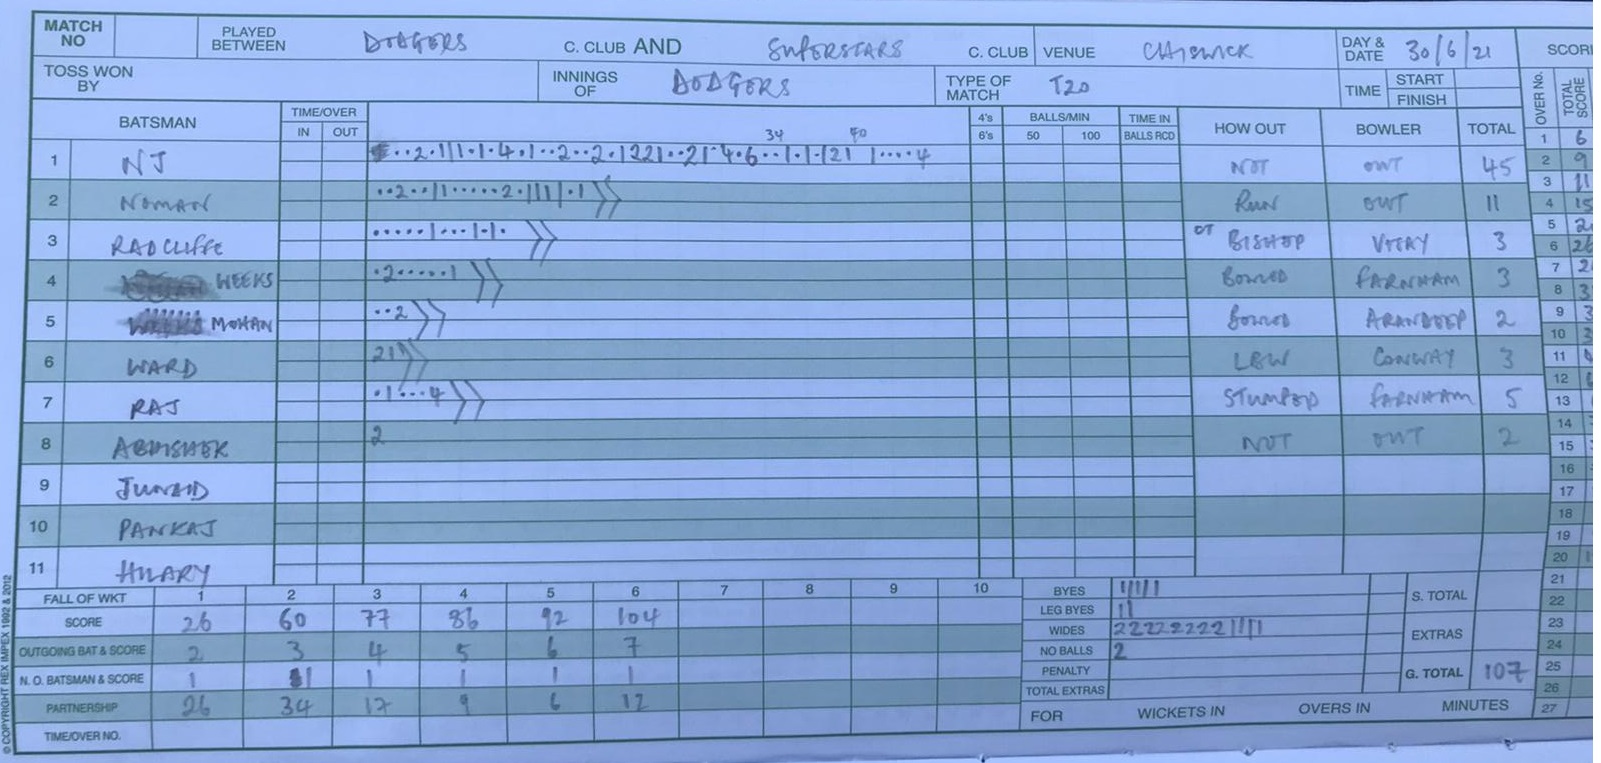 MATCH NO PLAYED BETWEEN DODGERS C. CLUB AND SUPERSTARS C. CLUB VENUE CHISWICK DAY & DATE 30/6/21 SCORI
TOSS WON BY INNINGS OF DODGERS TYPE OF MATCH T20 TIME START FINISH OVER No. TOTAL SCORE
BATSMAN TIME/OVER IN OUT 4's 6's BALLS/MIN 50 100 TIME IN BALLS RCD HOW OUT BOWLER TOTAL
34 40
1 NJ NOT OUT 45
2 NOMAN ··2··|1·····2·111|·1 RUN OUT 11
3 RADCLIFFE ·····1···1·1· CT BISHOP 3
4 WEEKS ·2·····1 BOWLED FARNHAM 3
5 MOHAN ··2 BOWLED ARANDEEP 2
6 WARD 21 LBW CONWAY 3
7 RAJ ·1···4 STUMPED FARNHAM 5
8 ABHISHEK 2 NOT OUT 2
9 JUNAID
10 PANKAJ
11 HILARY
1 6
2 9
3 11
4 15
5 2
6 26
7 2
8 3
9 3
10 3
11
12
13
14
15
16
17
18
19
20 1
21
22
23
24
25
26
27
FALL OF WKT 1 2 3 4 5 6 7 8 9 10
SCORE 26 60 77 86 92 104
OUTGOING BAT & SCORE 2 3 4 5 6 7
N. O. BATSMAN & SCORE 1 1 1 1 1 1
PARTNERSHIP 26 34 17 9 6 12
TIME/OVER NO.
BYES 11111
LEG BYES 11 S. TOTAL
WIDES 222222221111 EXTRAS
NO BALLS 2
PENALTY G. TOTAL 107
TOTAL EXTRAS
FOR WICKETS IN OVERS IN MINUTES
© COPYRIGHT REX IMPEX 1992 & 2012